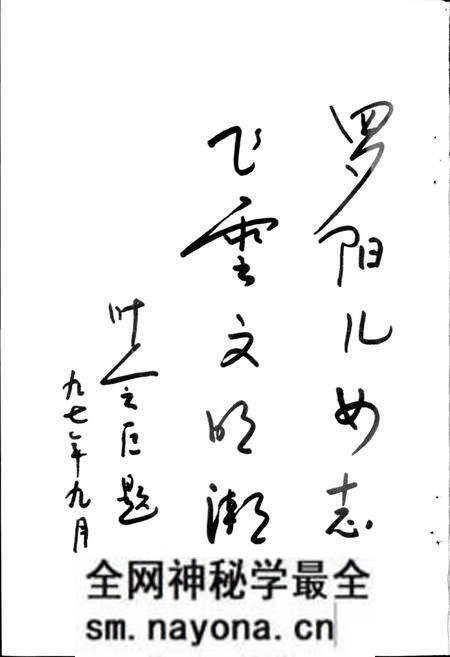 罗阳儿女志
飞雲文明潮
叶题
九七年九月
全网神秘学最全
sm.nayona.cn